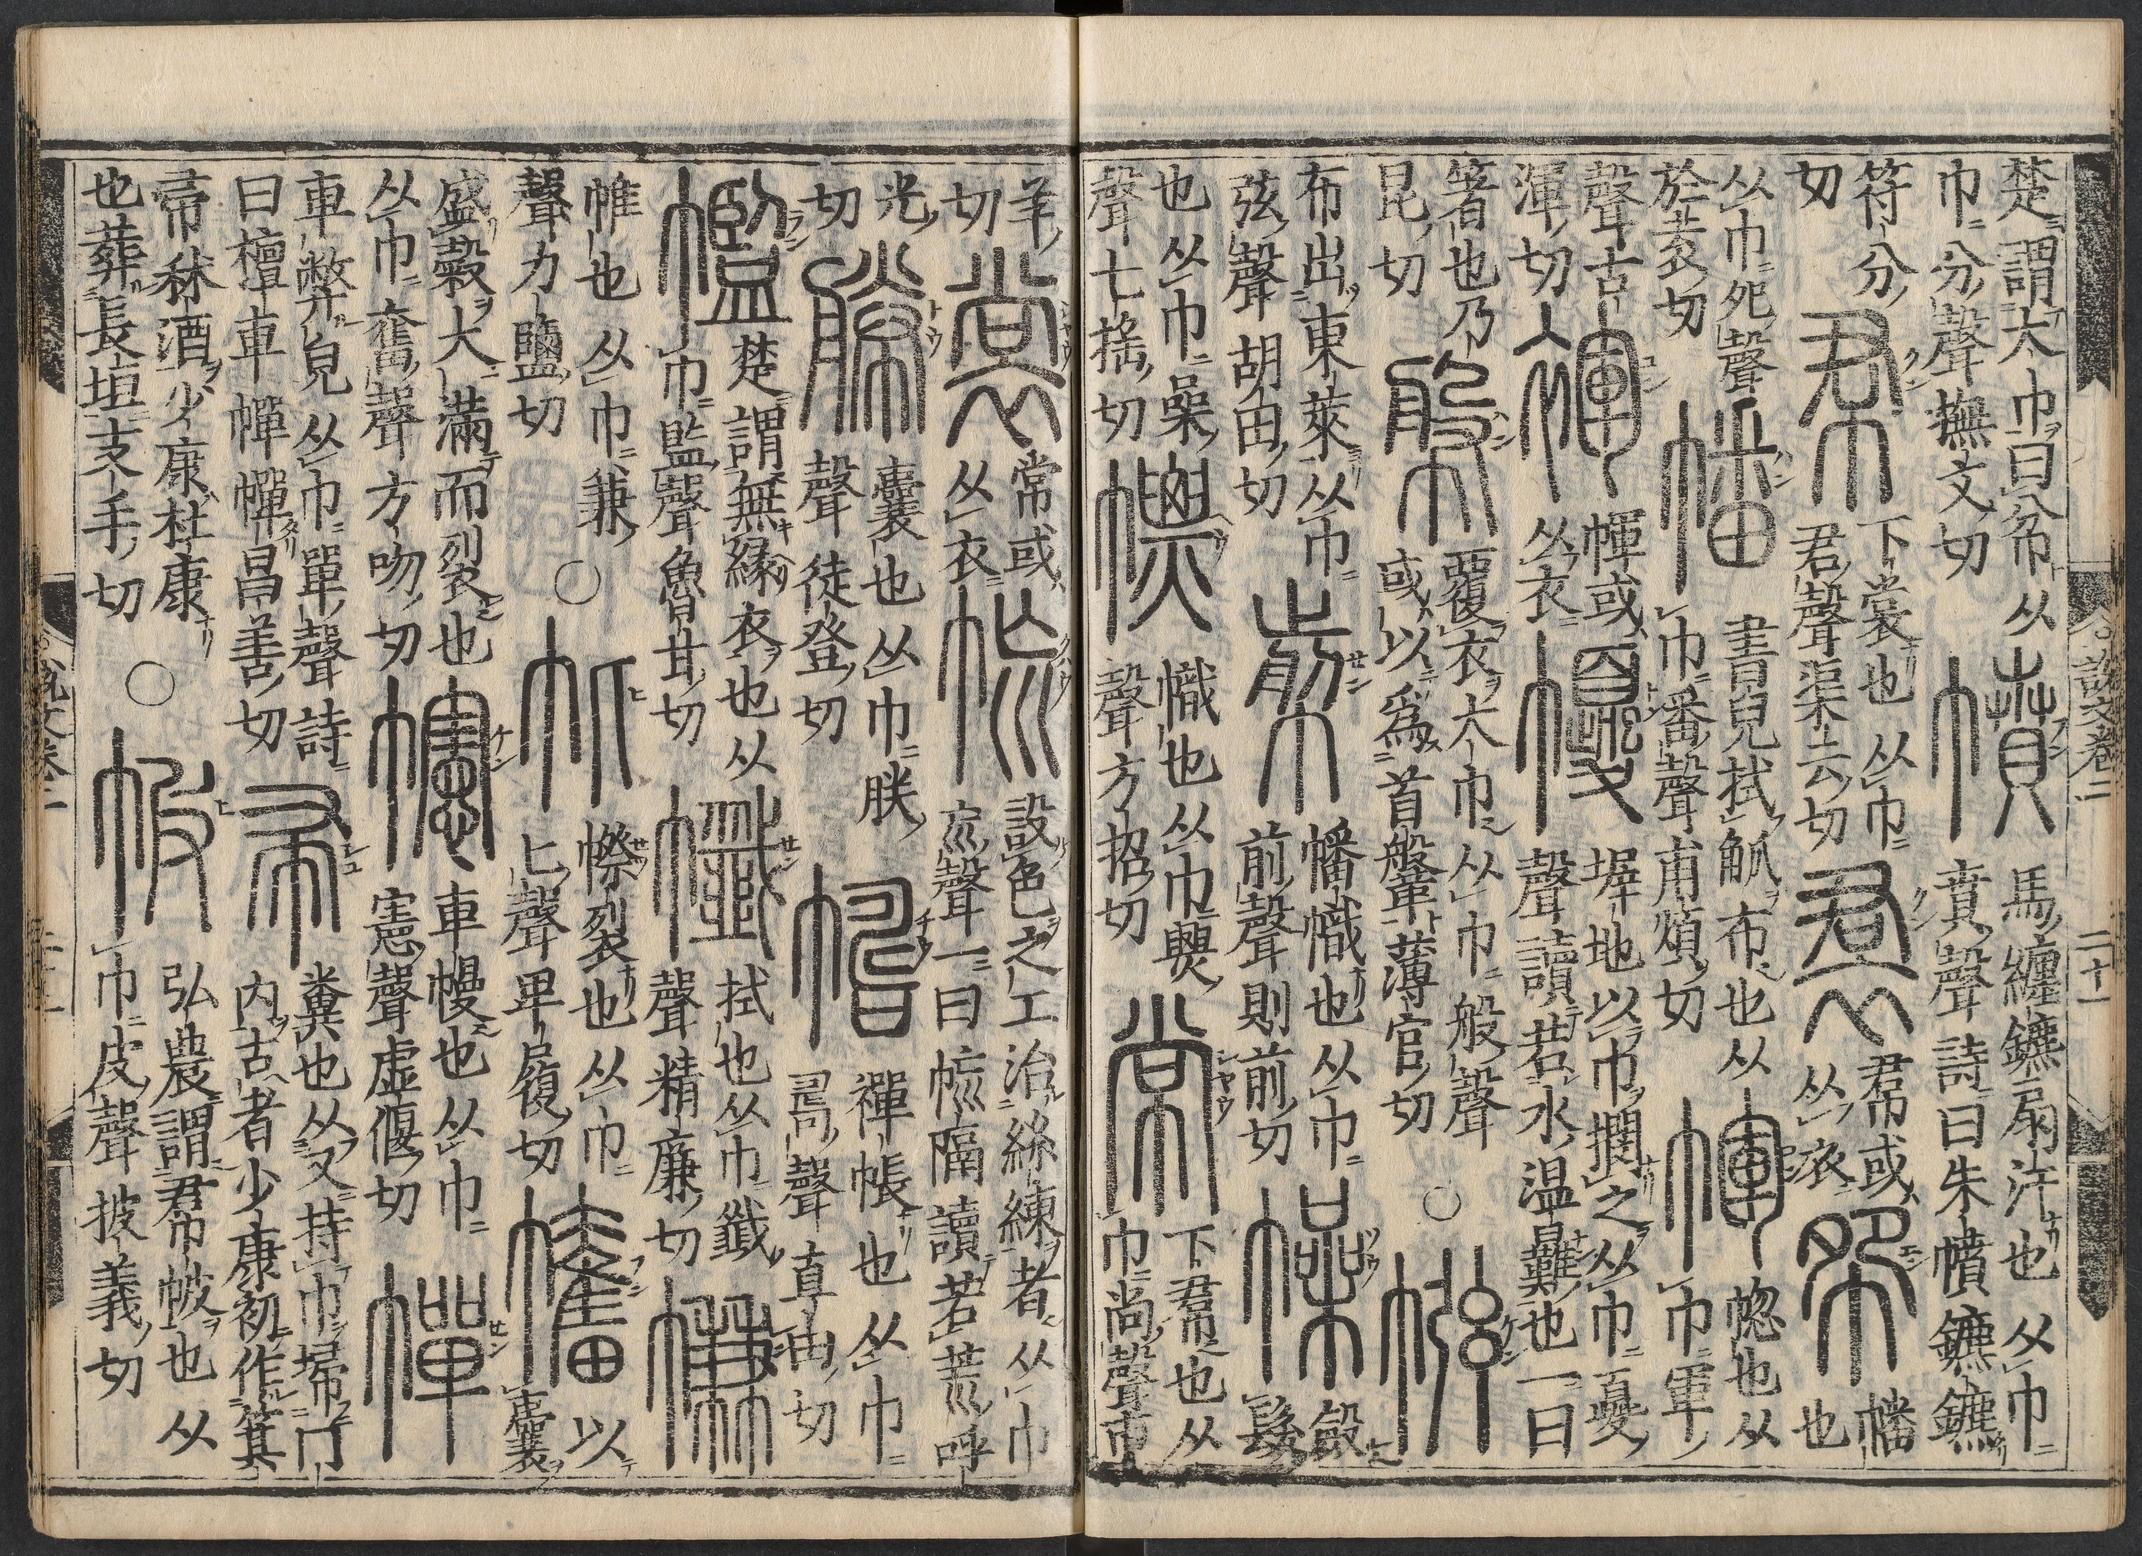 楚謂大巾曰帉从
巾分聲撫文切
幩
馬纏鑣扇汗也从巾
賁聲詩曰朱幩鑣鑣
符分
切
帬
下裳也从巾
君聲渠云切
裠
帬或
从衣
幡
也
从巾夗聲
於袁切
幡
書皃拭觚布也从
巾番聲甫煩切
㡓
幒也从
巾軍
聲古
渾切
褌
㡓或
从衣
墀地以巾㨉之从巾夒
聲讀若水温難也一曰
箸也乃
昆切
幋
覆衣大巾从巾般聲
或以爲首鞶薄官切
○
㡉
布出東萊从巾
弦聲胡田切
㡐
幡幟也从巾
前聲則前切
幧
斂
髮
也从巾喿
聲七搖切
幖
幟也从巾㯱
聲方招切
常
下帬也从
巾尚聲市
說文卷二
二十一
羊
切
裳
常或
从衣
㡆
設色之工治絲練者从巾
巟聲一曰㡆隔讀若荒呼
光
切
幐
囊也从巾朕
聲徒登切
幬
襌帳也从巾
𠷎聲直由切
㡮
楚謂無緣衣也从
巾監聲魯甘切
㡨
拭也从巾韱
聲精廉切
㡘
帷也从巾兼
聲力鹽切
○
㠲
幤裂也从巾
匕聲卑履切
㡔
以
囊
盛穀大滿而裂也
从巾奮聲方吻切
幰
車幔也从巾
憲聲虛偃切
幝
車弊皃从巾單聲詩
曰檀車幝幝昌善切
帚
糞也从又持巾埽冂
内古者少康初作箕
帚秫酒少康杜康
也葬長垣支手切
○
帔
弘農謂帬帔也从
巾皮聲披義切